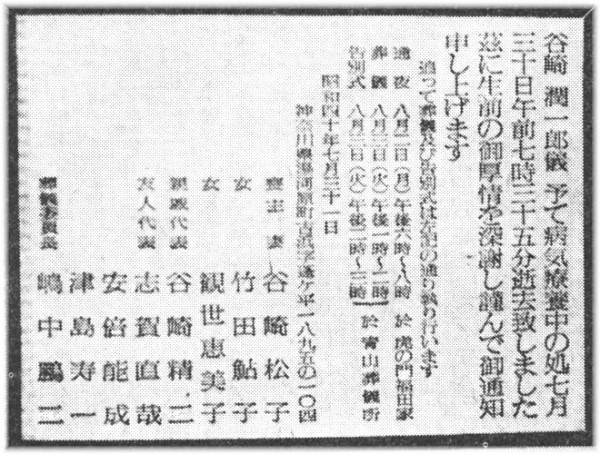 谷崎 潤一郎儀 予て病気療養中の処七月
三十日午前七時三十五分逝去致しました
茲に生前の御厚情を深謝し謹んで御通知
申し上げます
追って葬儀及び告別式は左記の通り執り行います
通夜 八月二日(月)午後六時〜八時 於 虎の門福田家
葬儀 八月三日(火)午後一時〜二時 於 青山葬儀所
告別式 八月三日(火)午後二時〜三時
昭和四十年七月三十一日
神奈川県湯河原町吉浜字蓬ケ平一八九五の一〇四
喪主 妻 谷崎松子
女 竹田鮎子
女 観世恵美子
親戚代表 谷崎精二
友人代表 志賀直哉
安倍能成
津島寿一
葬儀委員長 嶋中鵬二